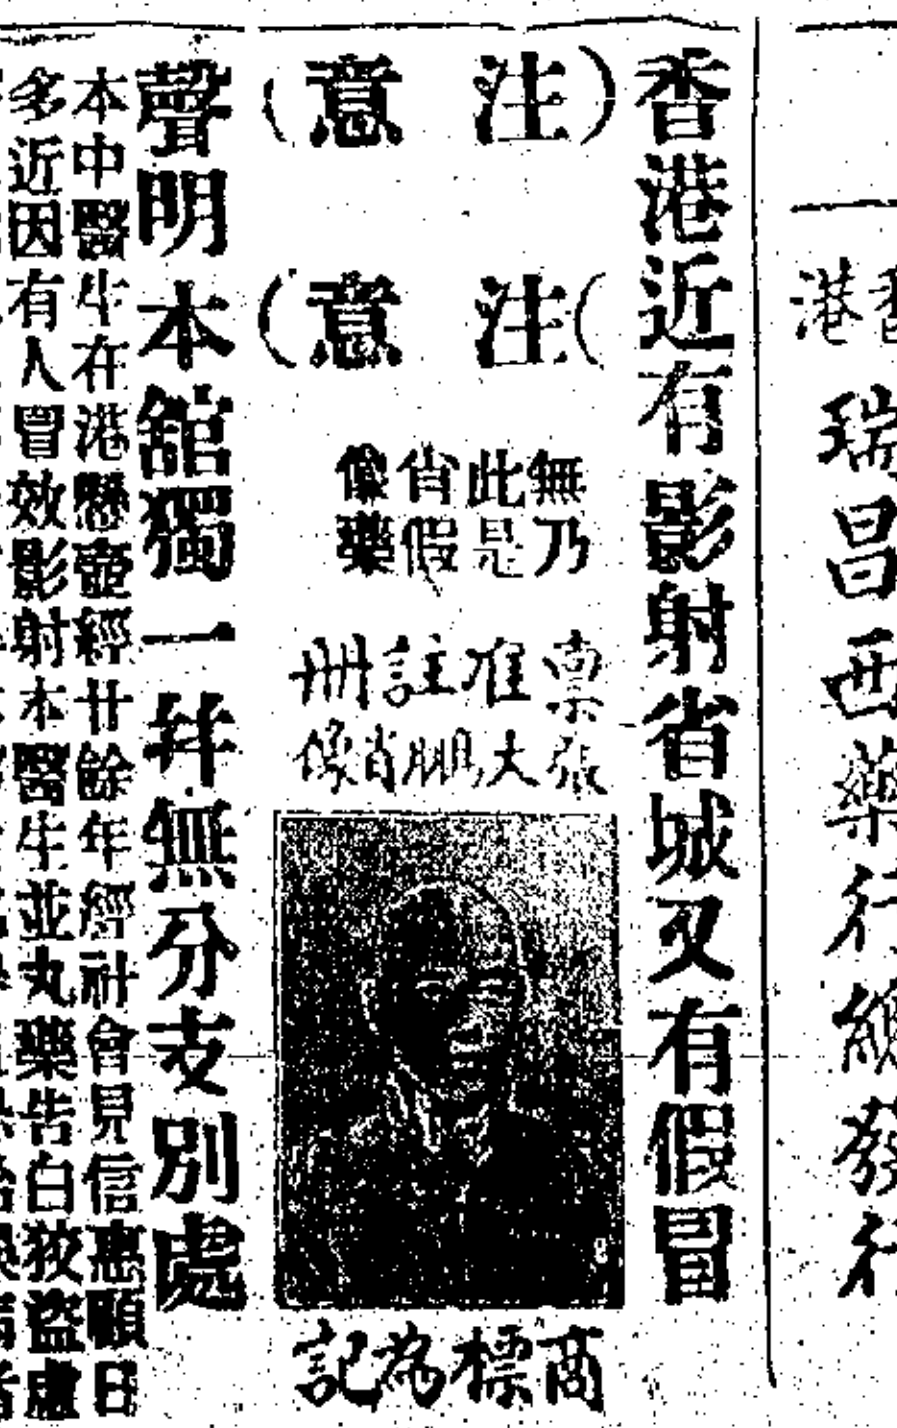 瑞昌西藥行總發行
香港近有影射省城又有假冒
(注意)
(注意)
無此肖像
乃是假藥
稟准註冊
張大鵬肖像
商標為記
聲明本舘獨一并無分支別處
本中醫生在港懸壺經廿餘年經社會見信惠顧日
多近因有人冒效影射本醫生並丸藥告白狡盜虛